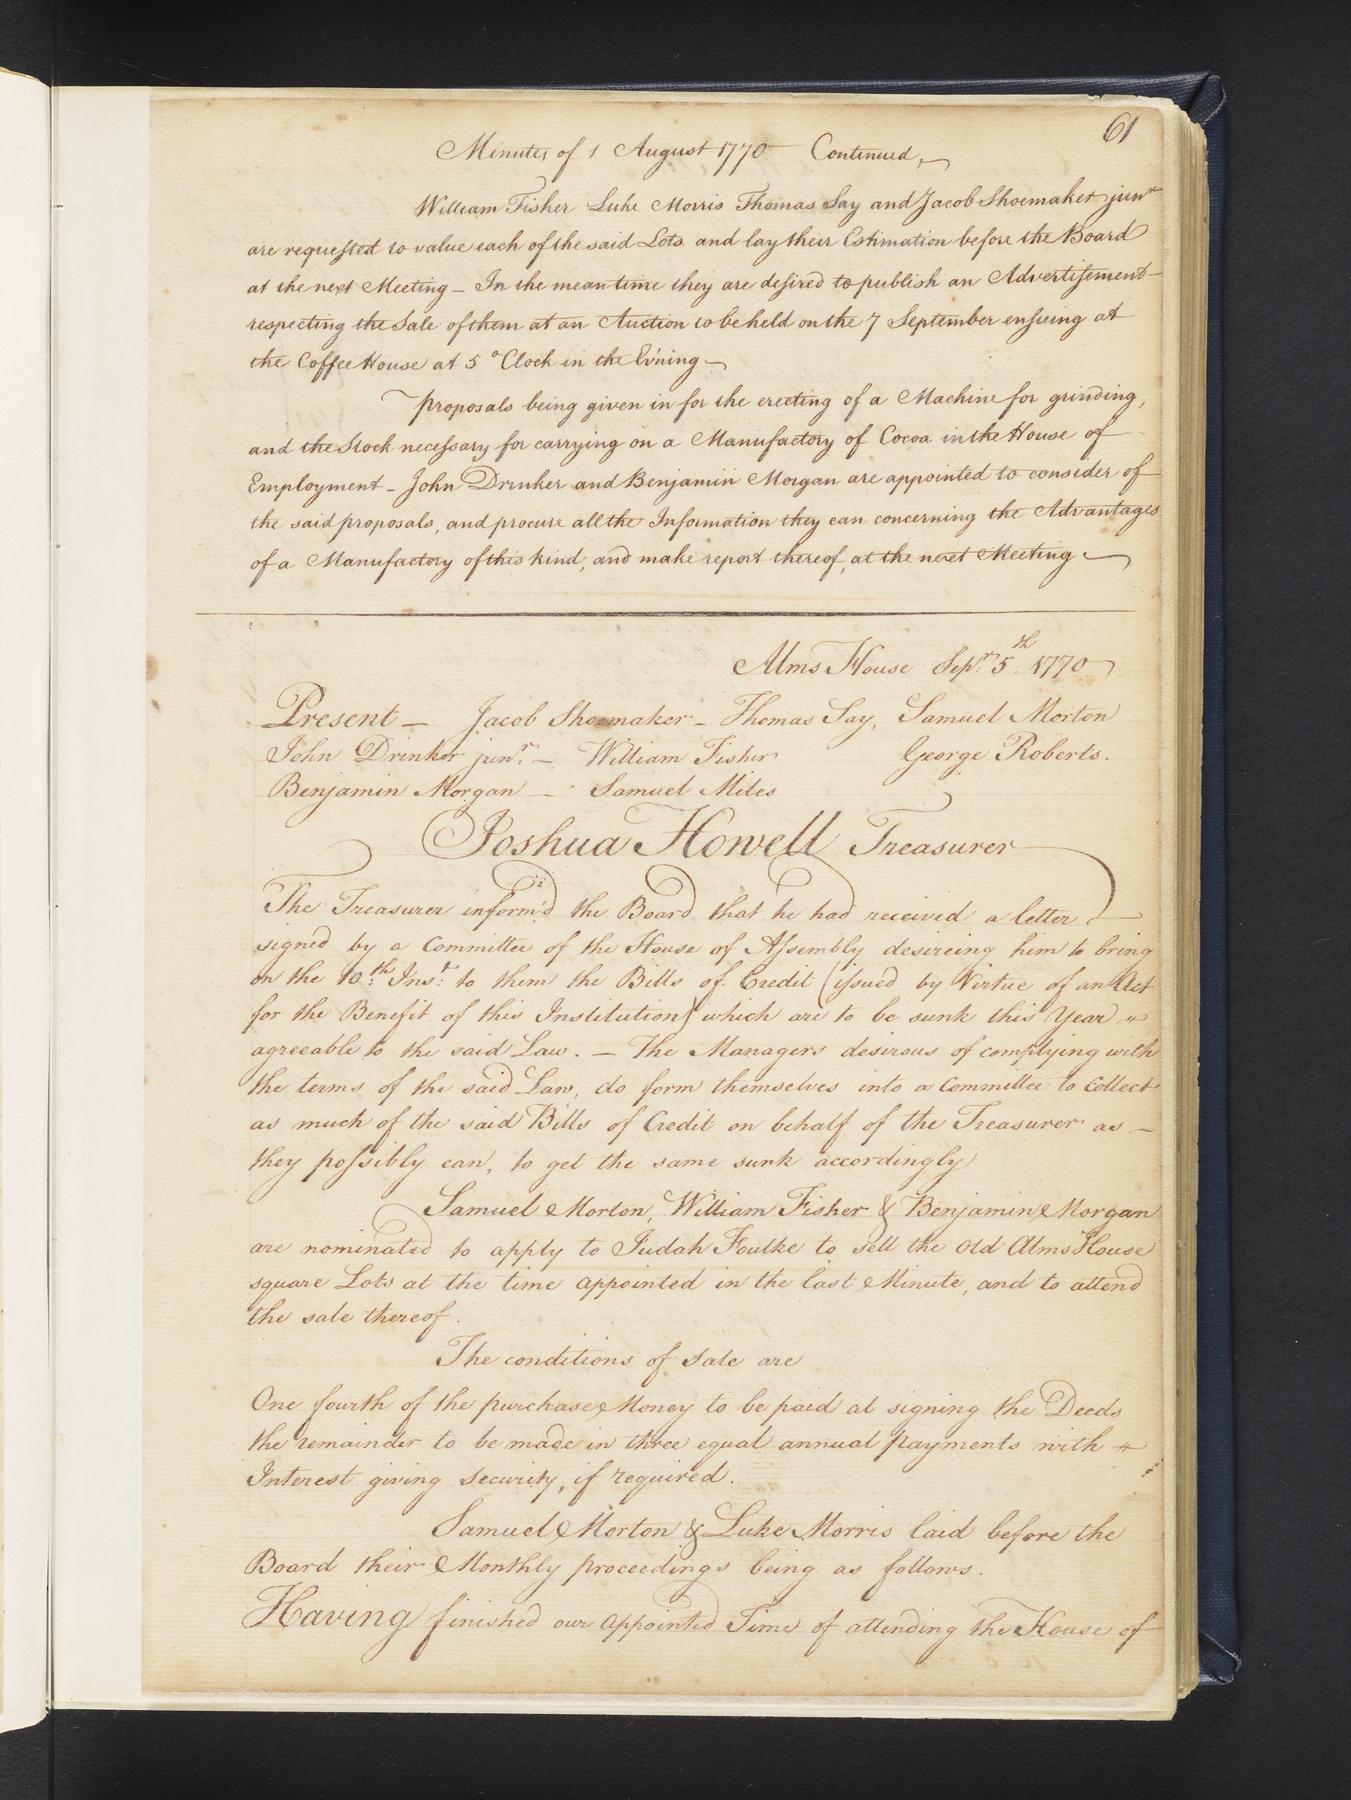 61
Minutes of 1 August 1770 Continued
William Fisher Luke Morris Thomas Say and Jacob Shoemaker junr
are requested to value each of the said Lots and lay their Estimation before the Board
at the next Meeting – In the mean time they are desired to publish an Advertisement
respecting the Sale of them at an Auction to be held on the 7 September ensuing at
the Coffee House at 5 o'Clock in the Ev'ning
proposals being given in for the erecting of a Machine for grinding,
and the Stock necessary for carrying on a Manufactory of Cocoa in the House of
Employment – John Drinker and Benjamin Morgan are appointed to consider of
the said proposals, and procure all the Information they can concerning the Advantages
of a Manufactory of this kind, and make report thereof, at the next Meeting
Alms House Sepr. 5th. 1770
Present – Jacob Shoemaker – Thomas Say, Samuel Morton
John Drinker junr. – William Fisher George Roberts.
Benjamin Morgan – Samuel Miles
Joshua Howell Treasurer
The Treasurer inform'd the Board that he had received a letter
signed by a Committee of the House of Assembly desireing him to bring
on the 10th. Inst. to them the Bills of Credit (issued by Virtue of an Act
for the Benefit of this Institution) which are to be sunk this Year
agreeable to the said Law. – The Managers desirous of complying with
the terms of the said Law, do form themselves into a Committee to Collect
as much of the said Bills of Credit on behalf of the Treasurer as –
they possibly can, to get the same sunk accordingly
Samuel Morton, William Fisher & Benjamin Morgan
are nominated to apply to Judah Foulke to sell the Old Alms House
square Lots at the time appointed in the last Minute, and to attend
the sale thereof.
The conditions of Sale are
One fourth of the purchase Money to be paid at signing the Deeds
the remainder to be made in three equal annual payments with
Interest giving security, if required.
Samuel Morton & Luke Morris laid before the
Board their Monthly proceedings being as follows.
Having finished our appointed Time of attending the House of